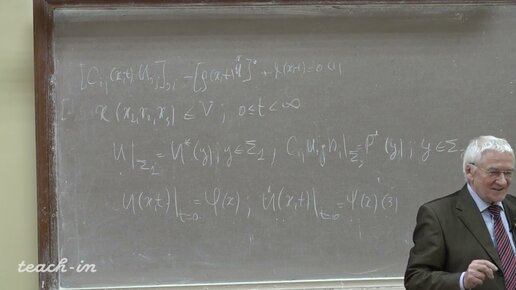 [C_{ij}(x,t) U_{,j}]_{,i} - [ρ(x,t) U̇]^• + X(x,t) = 0 (1)
x(x_1, x_2, x_3) ∈ V; 0 ≤ t < ∞
U|_{Σ_1} = U^*(y); y ∈ Σ_1; C_{ij} U_{,j} n_i|_{Σ_2} = P^*(y); y ∈ Σ
U(x,t)|_{t=0} = φ(x); U̇(x,t)|_{t=0} = ψ(x) (3)
teach-in